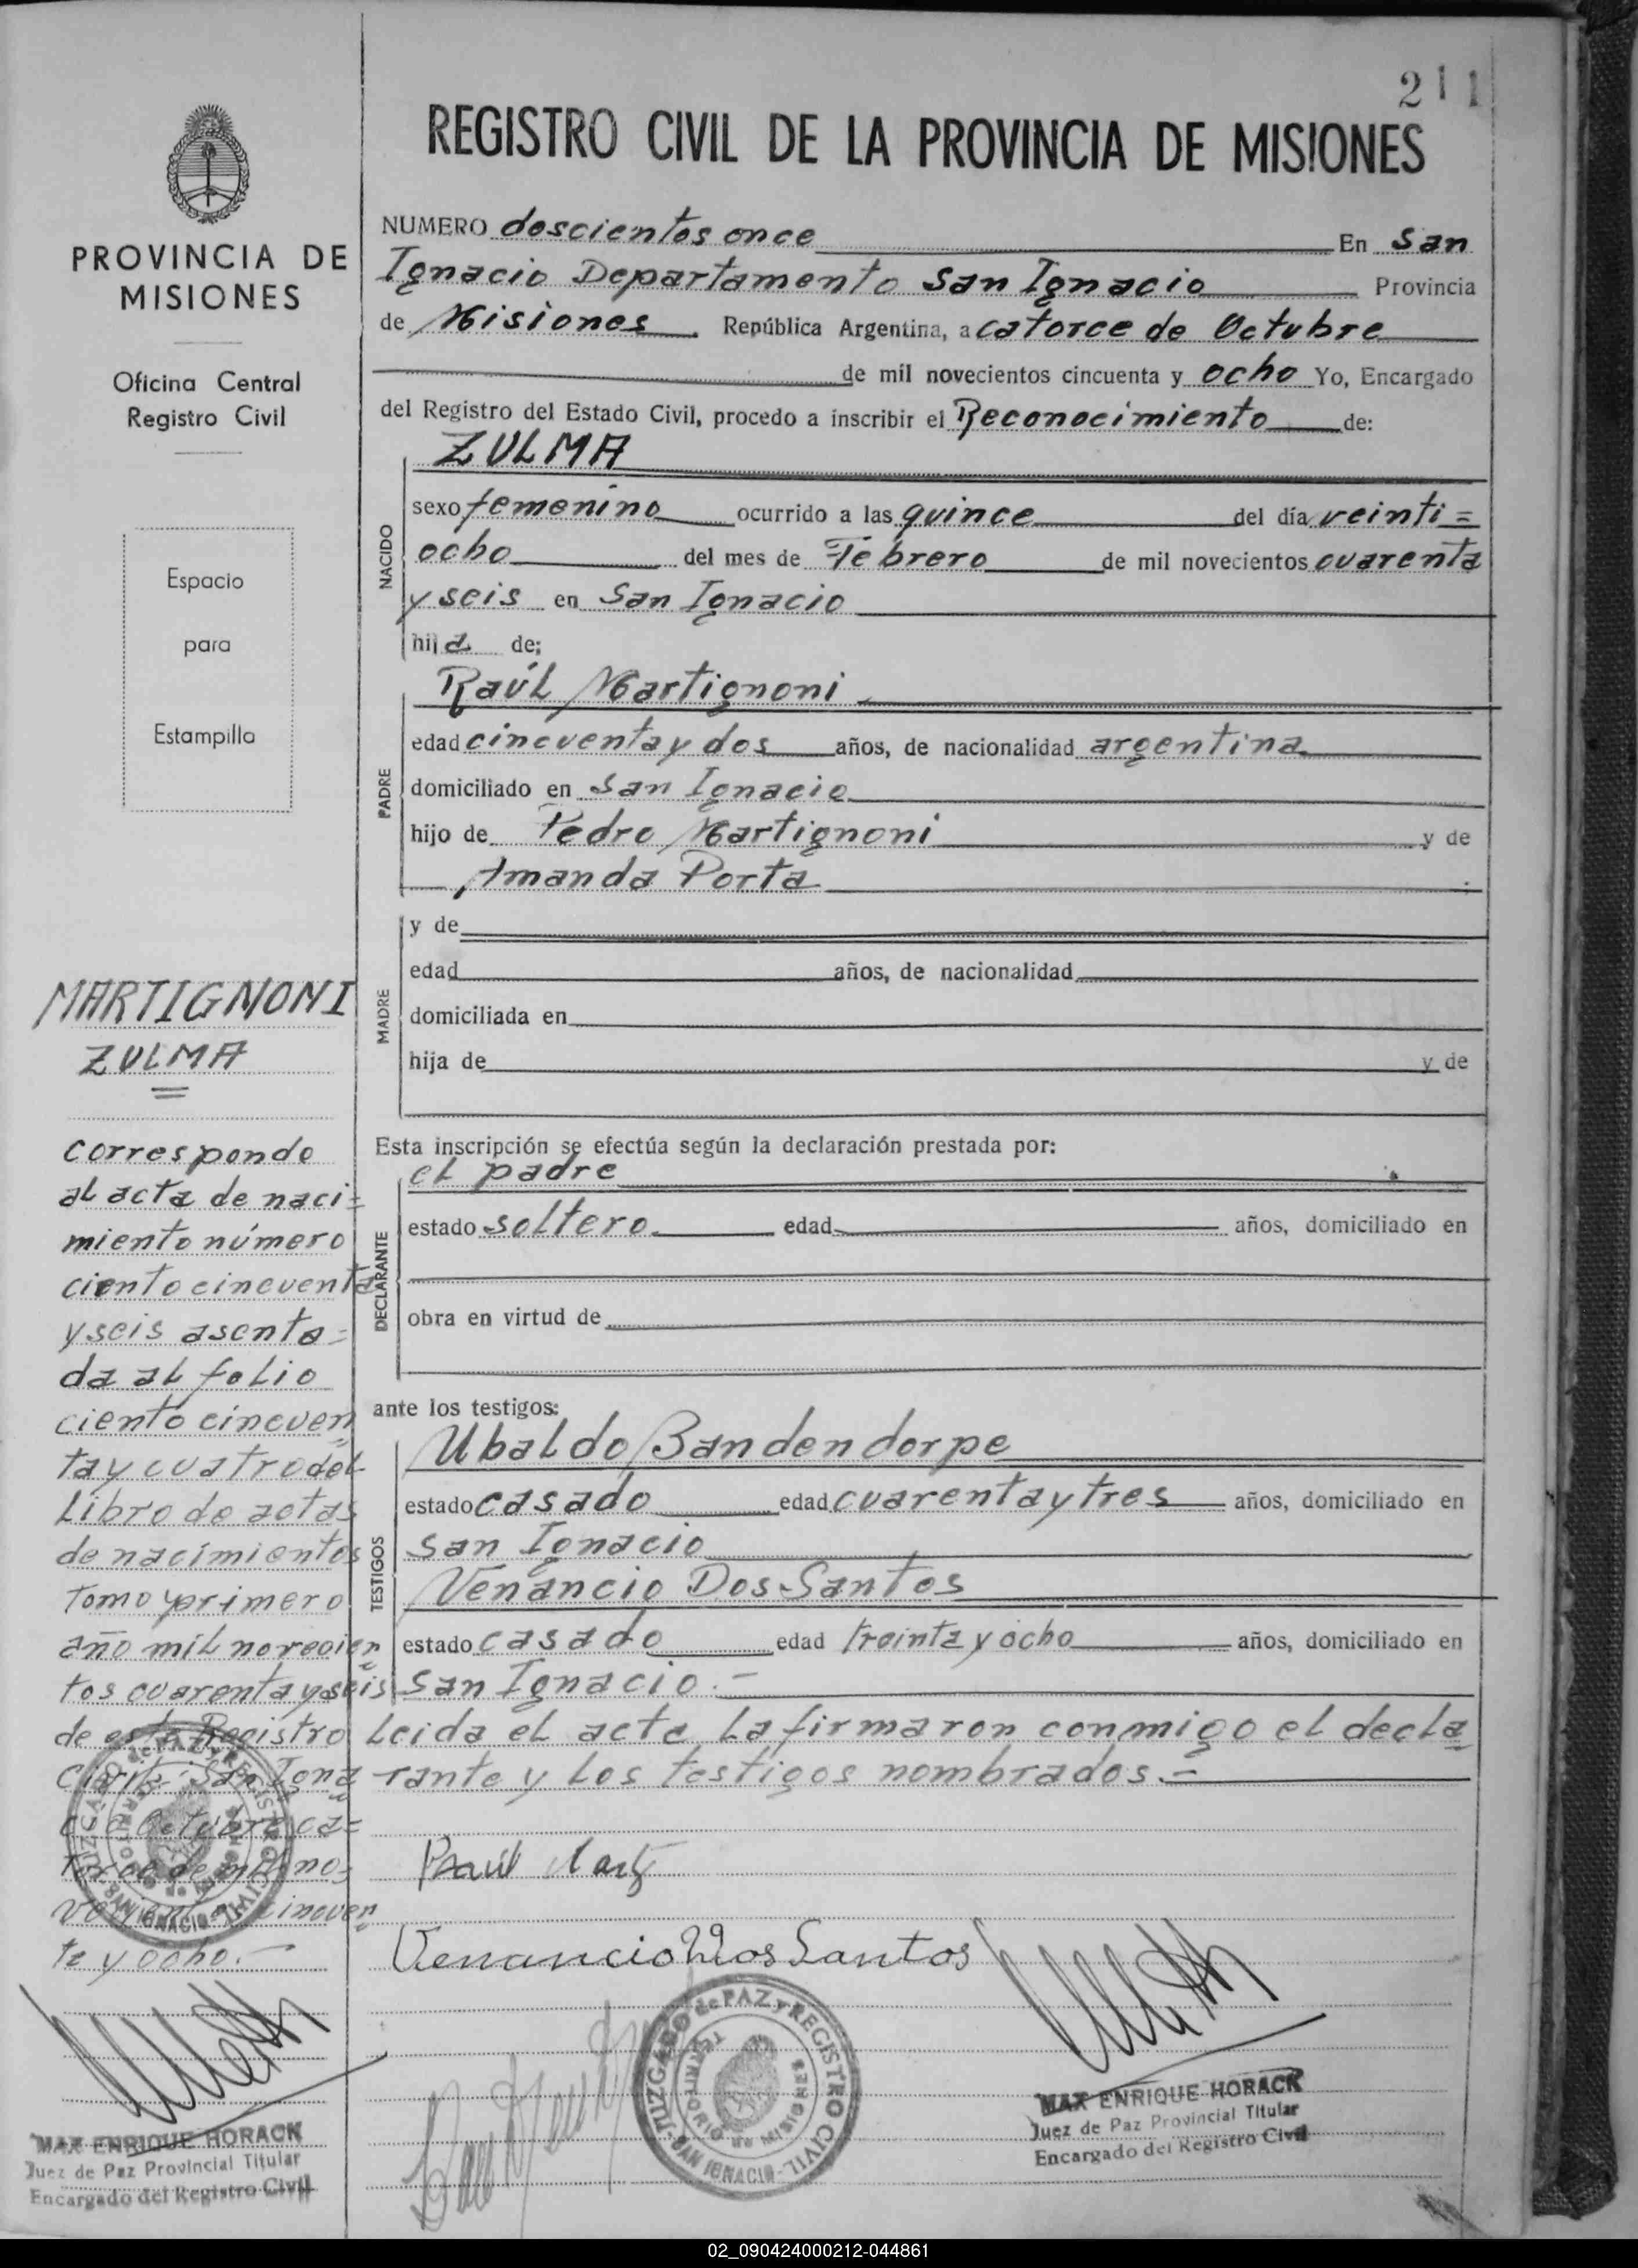 211
REGISTRO CIVIL DE LA PROVINCIA DE MISIONES
PROVINCIA DE
MISIONES
Oficina Central
Registro Civil
Espacio
para
Estampilla
MARTIGNONI
ZULMA
corresponde
al acta de naci=
miento número
ciento cincuenta
y seis asenta=
da al folio
ciento cincuen
ta y cuatro del
Libro de actas
de nacimientos
Tomo primero
año mil novecien
tos cuarenta y seis
de este Registro
Civil. San Igna
cio Octubre ca=
torce de mil no=
vecientos cincuen
ta y ocho.-
MAX ENRIQUE HORACK
Juez de Paz Provincial Titular
Encargado del Registro Civil
NUMERO doscientos once En San
Ignacio Departamento San Ignacio Provincia
de Misiones República Argentina, a catorce de Octubre
de mil novecientos cincuenta y ocho Yo, Encargado
del Registro del Estado Civil, procedo a inscribir el Reconocimiento de:
ZULMA
NACIDO
sexo femenino ocurrido a las quince del día veinti=
ocho del mes de Febrero de mil novecientos cuarenta
y seis en San Ignacio
hija de;
PADRE
Raúl Martignoni
edad cincuenta y dos años, de nacionalidad argentina
domiciliado en San Ignacio
hijo de Pedro Martignoni y de
Amanda Porta ;
MADRE
y de
edad años, de nacionalidad
domiciliada en
hija de y de
Esta inscripción se efectúa según la declaración prestada por:
DECLARANTE
el padre
estado soltero edad años, domiciliado en
obra en virtud de
ante los testigos:
TESTIGOS
Ubaldo Bandendorpe
estado casado edad cuarenta y tres años, domiciliado en
San Ignacio
Venancio Dos Santos
estado casado edad treinta y ocho años, domiciliado en
San Ignacio.-
Leida el acta, La firmaron conmigo el decla
rante y los testigos nombrados.-
Raúl Marti
Venancio Dos Santos
JUZGADO de PAZ y REGISTRO CIVIL
SAN IGNACIO
TERRITORIO de MISIONES
MAX ENRIQUE HORACK
Juez de Paz Provincial Titular
Encargado del Registro Civil
02_090424000212-044861